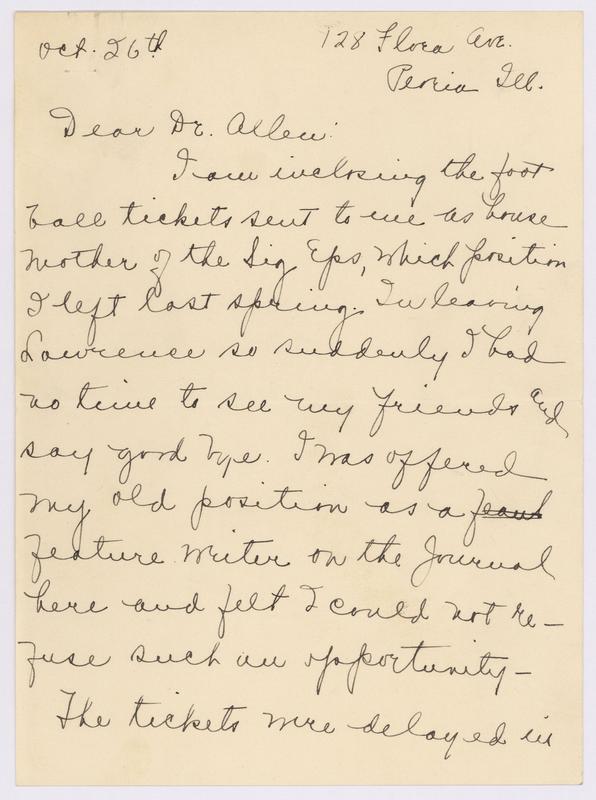 Oct. 26th
128 Flora Ave.
Peoria Ill.
Dear Dr. Allen:
I am inclosing the foot
ball tickets sent to me as house
mother of the Sig Eps, which position
I left last spring. In leaving
Lawrence so suddenly I had
no time to see my friends and
say good bye. I was offered
my old position as a
feature writer on the Journal
here and felt I could not re-
fuse such an opportunity-
The tickets were delayed in